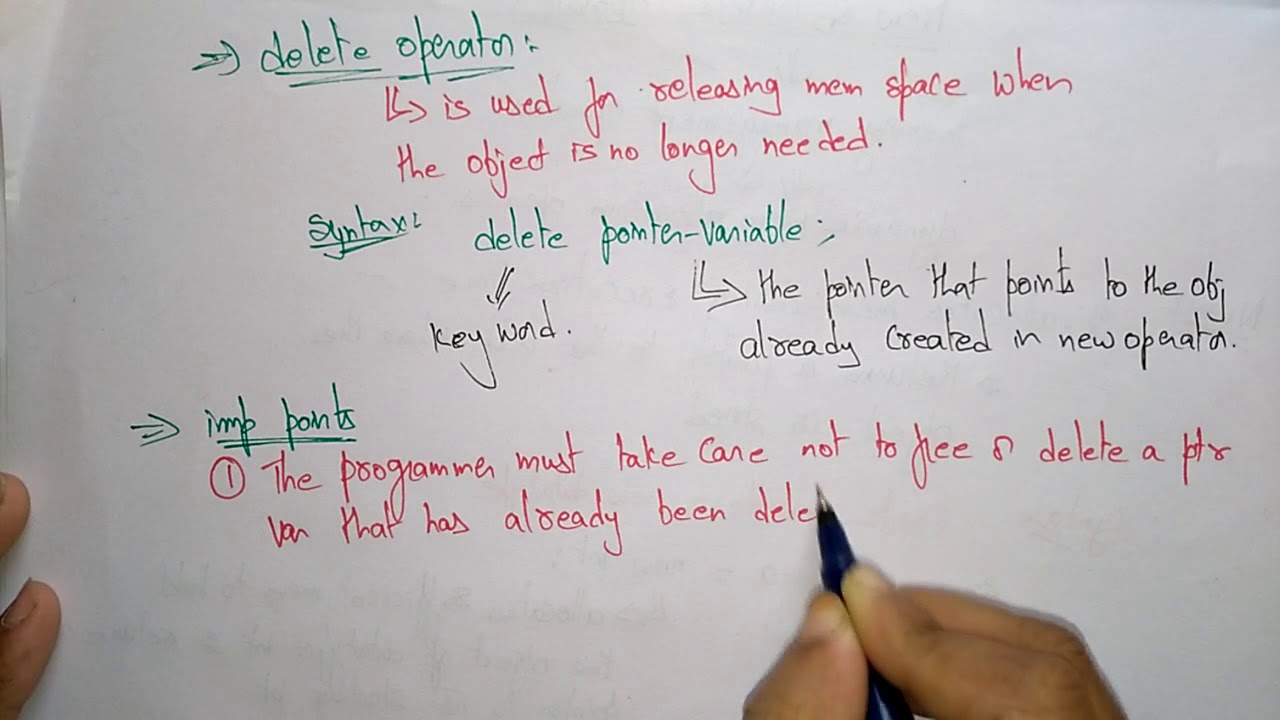 ⇒ delete operator:-
↳ is used for releasing mem space when
the object is no longer needed.
Syntax: delete pointer-variable;
keyword.
↳ the pointer that points to the obj
already created in new operator.
⇒ imp points
① The programmer must take care not to free or delete a ptr
var that has already been dele